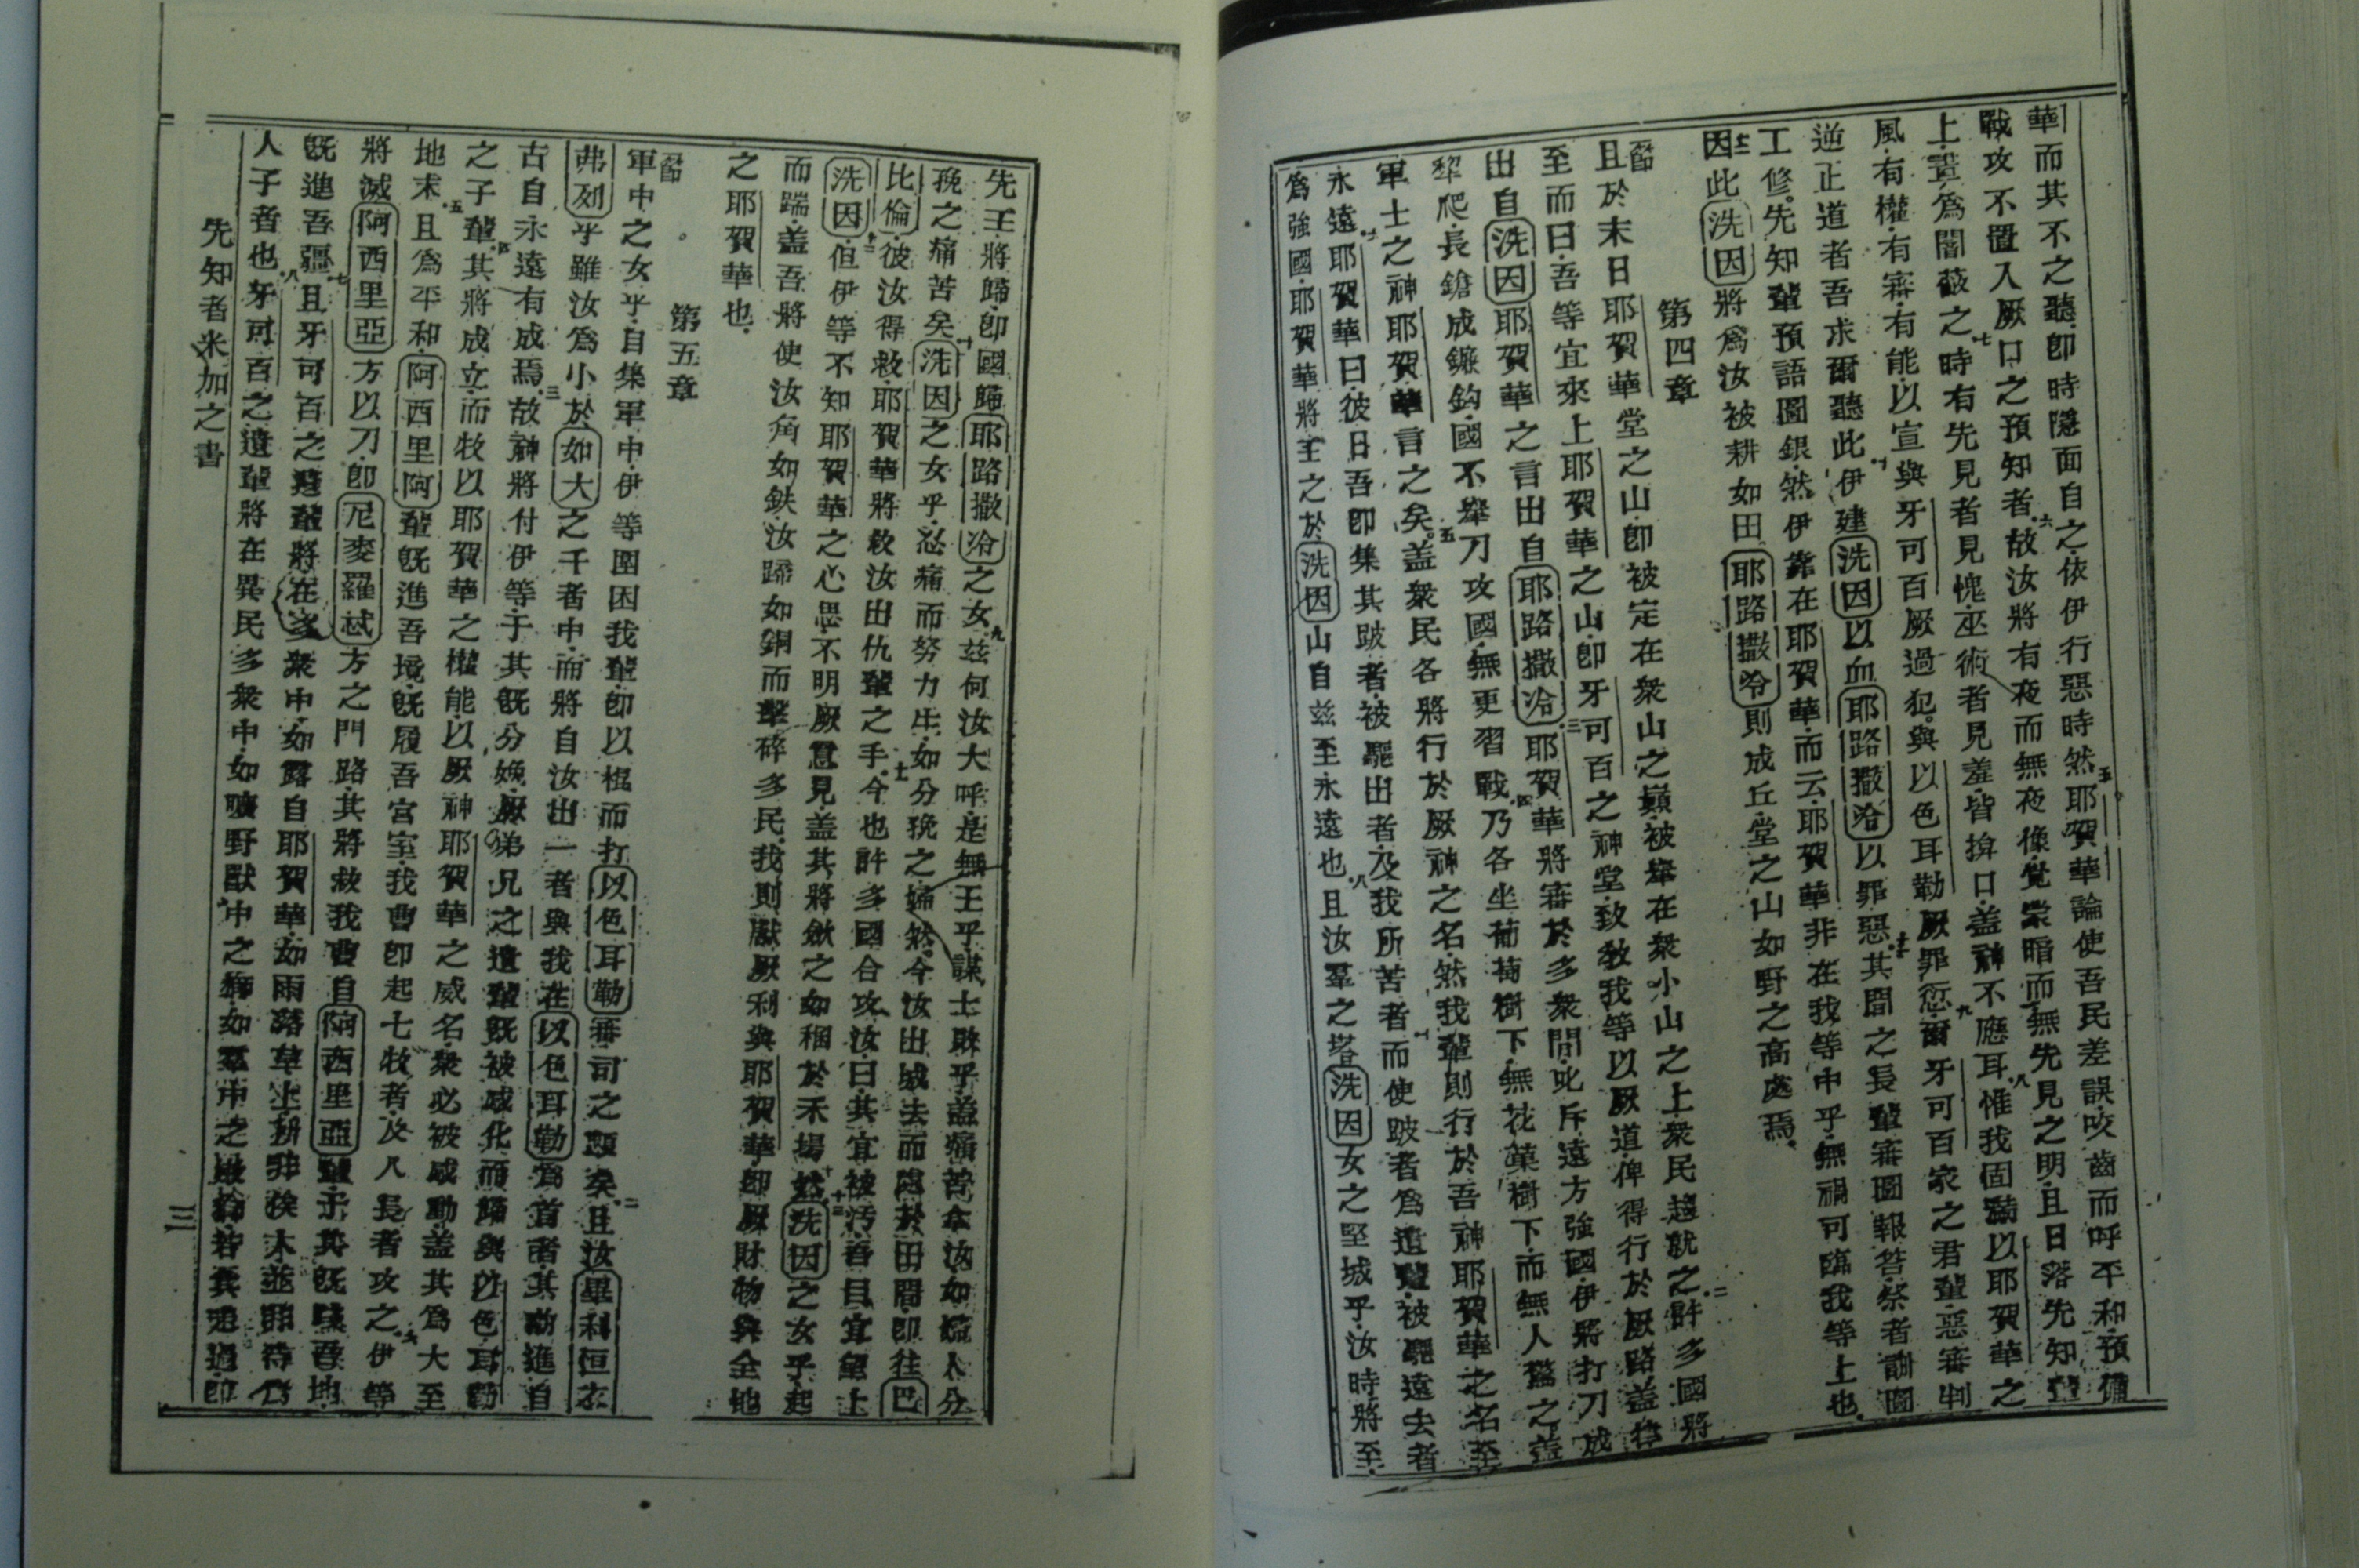 華而其不之聽即時隱面自之依伊行惡時然五耶賀華論使吾民差誤咬齒而呼平和預備
戰攻不置入厥口之預知者六故汝將有夜而無夜像覺棠暗而無先見之明且日落先知輩
上輩為闇蔽之七時有先見者見愧巫術者見羞皆揜口盖神不應耳八惟我固滿以耶賀華之
風有權有審有能以宣與牙可百厥過犯與以色耳勒厥罪愆九爾牙可百家之君輩惡審判
逆正道者吾求爾聽此十伊建洗因以血耶路撒冾以罪惡十一其間之長輩審圖報答祭者訓圖
工修先知輩預語圖銀然伊靠在耶賀華而云耶賀華非在我等中乎無禍可臨我等上也
十二因此洗因將為汝被耕如田耶路撒冾則成丘堂之山如野之高處焉
第四章
一節且於末日耶賀華堂之山即被定在衆山之巔被舉在衆小山之上衆民趨就之二許多國將
至而曰吾等宜來上耶賀華之山即牙可百之神堂致教我等以厥道俾得行於厥路盖律
出自洗因耶賀華之言出自耶路撒冾三耶賀華將審於多衆間叱斥遠方強國伊將打刀成
犂爬長鎗成鐮鈎國不舉刀攻國無更習戰四乃各坐葡萄樹下無花菓樹下而無人驚之盖
軍士之神耶賀華言之矣五盖衆民各將行於厥神之名然我輩則行於吾神耶賀華之名至
永遠六耶賀華曰彼日吾即集其跛者被驅出者及我所苦者七而使跛者為遺輩被驅遠去者
為強國耶賀華將王之於洗因山自茲至永遠也八且汝羣之塔洗因女之堅城乎汝時將至
先王將歸即國歸耶路撒冾之女九茲何汝大呼是無王乎謀士敗乎盖痛苦拿汝如媍人分
㝃之痛苦矣十洗因之女乎忍痛而努力生如分㝃之婦然今汝出城去而隱於田間即往巴
比倫彼汝得救耶賀華將救汝出仇輩之手十一今也許多國合攻汝曰其宜被汚吾目宜望上
洗因十二但伊等不知耶賀華之心思不明厥意見盖其將斂之如稇於禾場然十三洗因之女乎起
而踹盖吾將使汝角如鉄汝蹄如銅而擊碎多民我則獻厥利與耶賀華即厥財物與全地
之耶賀華也
第五章
一節軍中之女乎自集軍中伊等圍困我輩即以棍而打以色耳勒審司之頤矣二且汝畢利恒衣
弗列乎雖汝為小於如大之千者中而將自汝出一者與我在以色耳勒為首者其前進自
古自永遠有成焉三故神將付伊等于其既分娩厥弟兄之遺輩既被感化而歸與以色耳勒
之子輩四其將成立而牧以耶賀華之權能以厥神耶賀華之威名衆必被感動盖其為大至
地末五且為平和阿西里阿輩既進吾境既履吾宮室我曹即起七牧者及八長者攻之六伊等
將滅阿西里亞方以刀即尼麥羅弒方之門路其將救我曹自阿西里亞輩于其既踐吾地
既進吾疆七且牙可百之遺輩將在多衆中如露自耶賀華如雨落草上斯非俟人並非待為
人子者也八牙可百之遺輩將在異民多衆中如曠野獸中之獅如羣中之嫩獅若其走過即
先知者米加之書
三